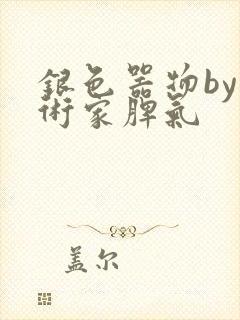 銀色器物by
術家脾氣
盖尔